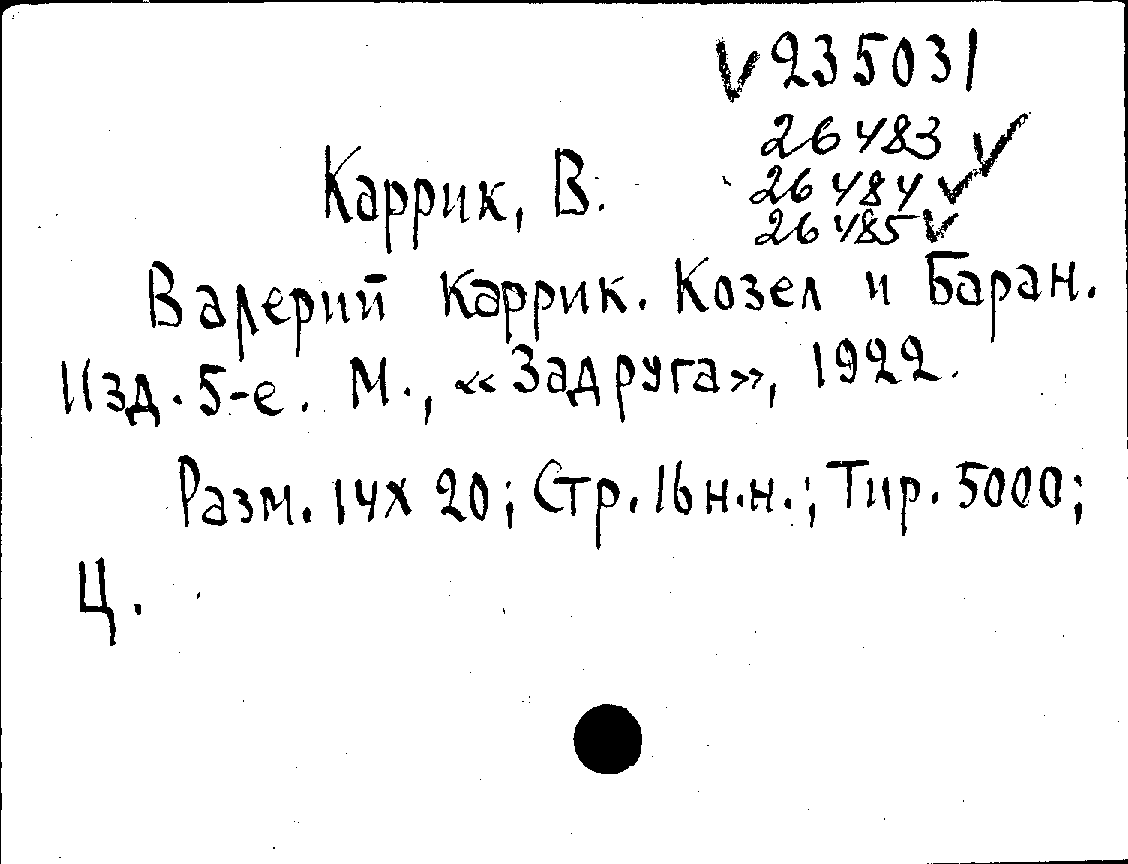 ✓ 235031
26483 ✓
26484 ✓
26485 ✓
Каррик, В.
Валерий Каррик. Козел и Баран.
Изд. 5-е. М., «Задруга», 1922.
Разм. 14х20; Стр. 16 н.н.; Тир. 5000;
Ц.